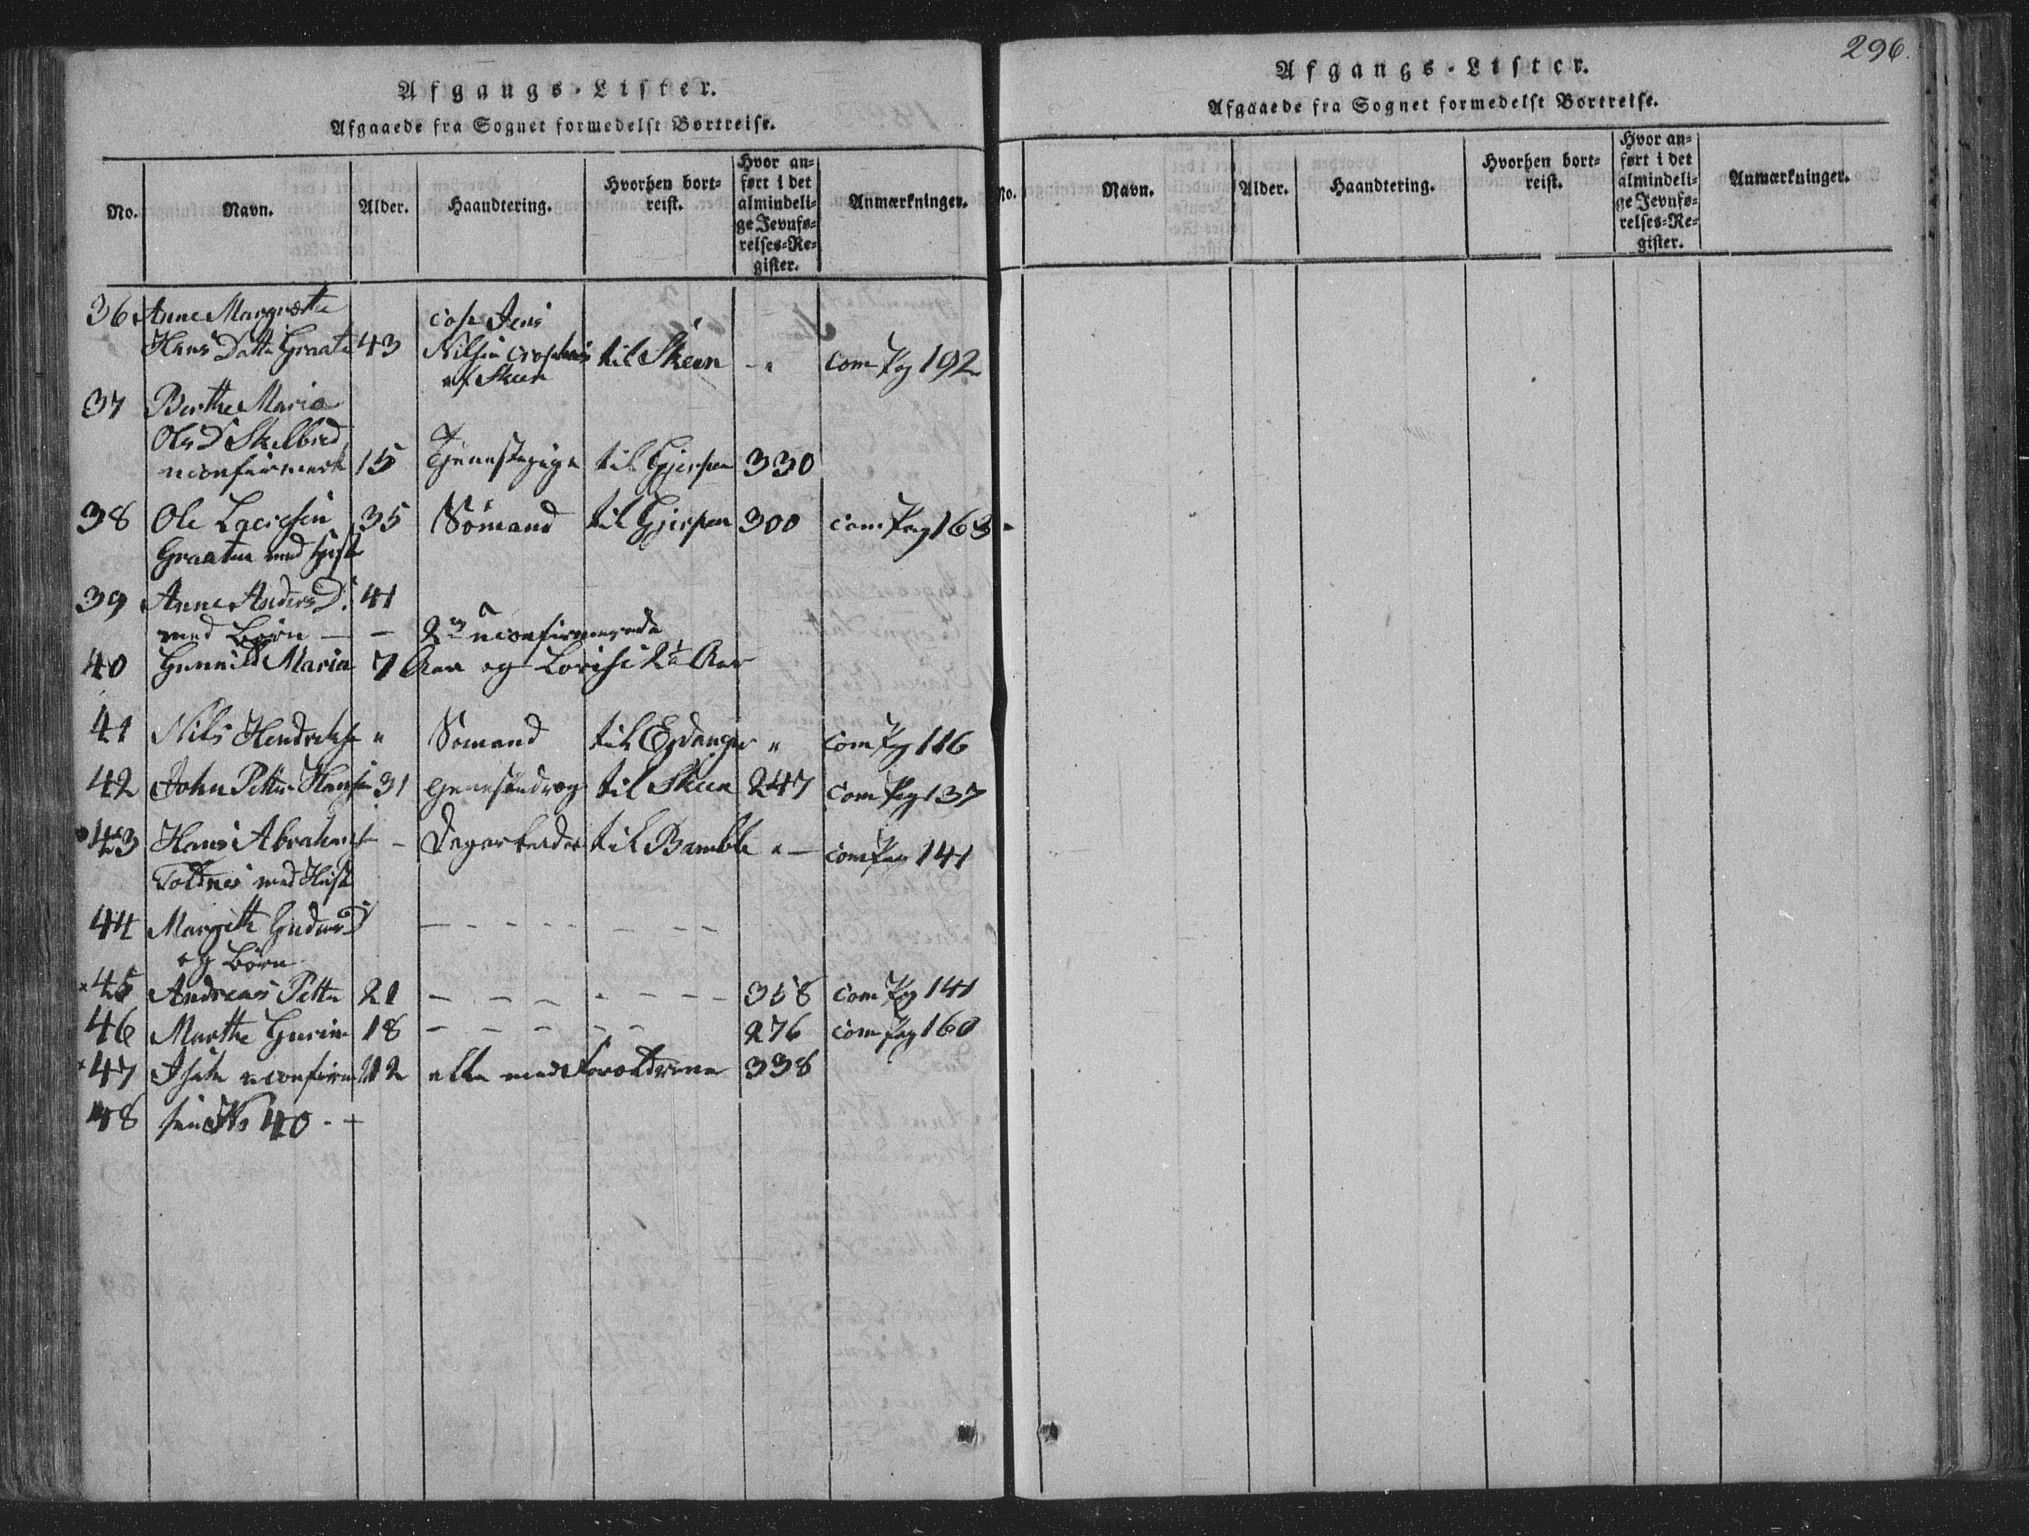 Afgangs-Lister.
Afgaaede fra Sognet formedelst Bortreise.
No. Navn. Alder. Haandtering. Hvorhen bortreist. Hvor anført i det almindelige Jevnførelses-Register. Anmærkninger.
36 Anne Margrethe
Hans Datter Graate 43 Jens Nilsen af Skeen til Skeen - " com Pag 192
37 Berthe Maria
Ols D Skilbred
uconfirmert 15 Tjenestepige til Gjerpen 330
38 Ole Larsen 35 Sømand til Gjerpen 300 com Pag 163
Graaten med Hust
39 Anne Anders D. 41
med Børn — — 2 uconfirmerede
40 Gunnild Maria 7 Aar og Lovise 2 1/2 Aar
41 Nils Hendrichs " Sømand til Eydanger " com Pag 116
42 John Petter Hansen 31 til Skeen 247 com Pag 137
43 Hans Abrahams - Dagarbeider til Bamble " — com Pag 141
Toldnes med Hust
44 Margith D
og Børn
45 Andreas Petter 21 — — — 358 com Pag 141
46 Marthe Gurine 18 — — — 276 com Pag 160
47 12 alle med Forældrene 338
48 No 40 -
296.
Afgangs-Lister.
Afgaaede fra Sognet formedelst Bortreise.
No. Navn. Alder. Haandtering. Hvorhen bortreist. Hvor anført i det almindelige Jevnførelses-Register. Anmærkninger.